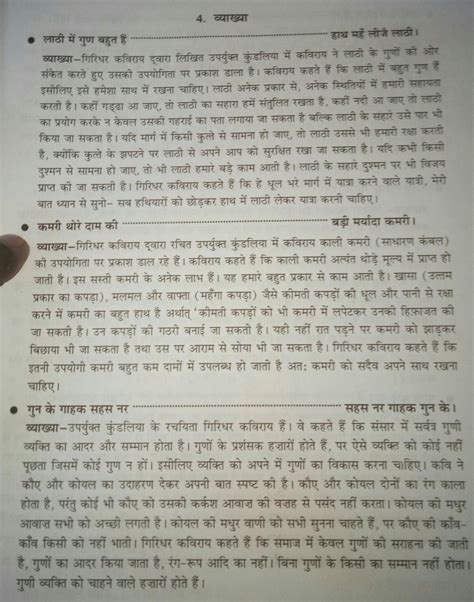 4. व्याख्या
● लाठी में गुण बहुत हैं ........................ हाथ महँ लीजै लाठी।
व्याख्या–गिरिधर कविराय द्वारा लिखित उपर्युक्त कुंडलिया में कविराय ने लाठी के गुणों की ओर
संकेत करते हुए उसकी उपयोगिता पर प्रकाश डाला है। कविराय कहते हैं कि लाठी में बहुत गुण हैं
इसीलिए इसे हमेशा साथ में रखना चाहिए। लाठी अनेक प्रकार से, अनेक स्थितियों में हमारी सहायता
करती है। कहीं गड्ढा आ जाए, तो लाठी का सहारा हमें संतुलित रखता है, कहीं नदी आ जाए तो लाठी
का प्रयोग करके न केवल उसकी गहराई का पता लगाया जा सकता है बल्कि लाठी के सहारे उसे पार भी
किया जा सकता है। यदि मार्ग में किसी कुत्ते से सामना हो जाए, तो लाठी उससे भी हमारी रक्षा करती
है, क्योंकि कुत्ते के झपटने पर लाठी से अपने आप को सुरक्षित रखा जा सकता है। यदि कभी किसी
दुश्मन से सामना हो जाए, तो भी लाठी हमारे बड़े काम आती है। लाठी के सहारे दुश्मन पर भी विजय
प्राप्त की जा सकती है। गिरिधर कविराय कहते हैं कि हे धूल भरे मार्ग में यात्रा करने वाले यात्री, मेरी
बात ध्यान से सुनो– सब हथियारों को छोड़कर हाथ में लाठी लेकर यात्रा करनी चाहिए।
● कमरी थोरे दाम की ........................ बड़ी मर्यादा कमरी।
व्याख्या–गिरिधर कविराय द्वारा रचित उपर्युक्त कुंडलिया में कविराय काली कमरी (साधारण कंबल)
की उपयोगिता पर प्रकाश डाल रहे हैं। कविराय कहते हैं कि काली कमरी अत्यंत थोड़े मूल्य में प्राप्त हो
जाती है। इस सस्ती कमरी के अनेक लाभ हैं। यह हमारे बहुत प्रकार से काम आती है। खासा (उत्तम
प्रकार का कपड़ा), मलमल और वाफ्ता (महँगा कपड़ा) जैसे कीमती कपड़ों की धूल और पानी से रक्षा
करने में कमरी का बहुत हाथ है अर्थात् 'कीमती कपड़ों को भी कमरी में लपेटकर उनकी हिफ़ाजत की
जा सकती है। उन कपड़ों की गठरी बनाई जा सकती है। यही नहीं रात पड़ने पर कमरी को झाड़कर
बिछाया भी जा सकता है तथा उस पर आराम से सोया भी जा सकता है। गिरिधर कविराय कहते हैं कि
इतनी उपयोगी कमरी बहुत कम दामों में उपलब्ध हो जाती है अत: कमरी को सदैव अपने साथ रखना
चाहिए।
● गुन के गाहक सहस नर ........................ सहस नर गाहक गुन के।
व्याख्या–उपर्युक्त कुंडलिया के रचयिता गिरिधर कविराय हैं। वे कहते हैं कि संसार में सर्वत्र गुणी
व्यक्ति का आदर और सम्मान होता है। गुणों के प्रशंसक हज़ारों होते हैं, पर ऐसे व्यक्ति को कोई नहीं
पूछता जिसमें कोई गुण न हों। इसीलिए व्यक्ति को अपने में गुणों का विकास करना चाहिए। कवि ने
कौए और कोयल का उदाहरण देकर अपनी बात स्पष्ट की है। कौए और कोयल दोनों का रंग काला
होता है, परंतु कोई भी कौए को उसकी कर्कश आवाज की वजह से पसंद नहीं करता। कोयल की मधुर
आवाज सभी को अच्छी लगती है। कोयल की मधुर वाणी को सभी सुनना चाहते हैं, पर कौए की काँव-
काँव किसी को नहीं भाती। गिरिधर कविराय कहते हैं कि समाज में केवल गुणों की सराहना की जाती
है, गुणों का आदर किया जाता है, रंग-रूप आदि का नहीं। बिना गुणों के किसी का सम्मान नहीं होता।
गुणी व्यक्ति को चाहने वाले हज़ारों होते हैं।